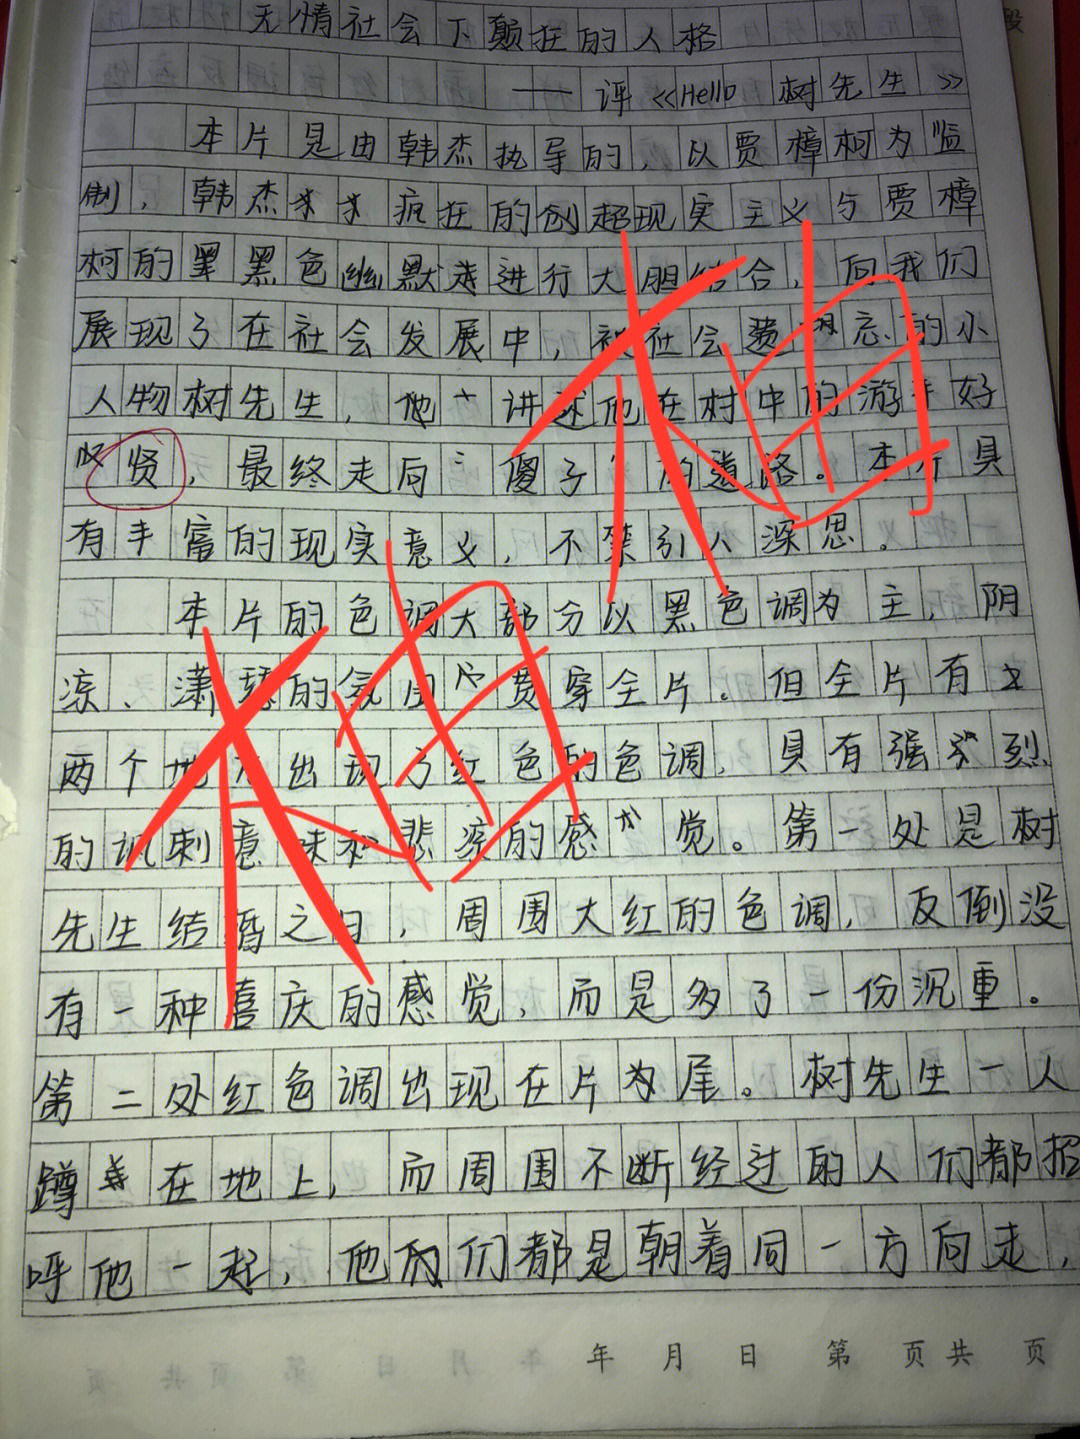 无情社会下颠狂的人格
—— 评《Hello 树先生》
本片是由韩杰执导的,以贾樟柯为监
制,韩杰 疯狂的创超现实主义与贾樟
柯的黑色幽默进行大胆结合,向我们
展现了在社会发展中,被社会遗忘的小
人物树先生,他 讲述他在村中的游手好
贤,最终走向“傻子”的道路。本片具
有丰富的现实意义,不禁引人深思。
本片的色调大部分以黑色调为主,阴
凉、潇瑟的氛围 贯穿全片。但全片有
两个地方出现了红色的色调,具有强烈
的讽刺意味和悲凉的感觉。第一处是树
先生结婚之日,周围大红的色调,反倒没
有一种喜庆的感觉,而是多了一份沉重。
第二处红色调出现在片尾。树先生一人
蹲在地上,而周围不断经过的人们都招
呼他一起,他们都是朝着同一方向走,
年 月 日 第 页共 页
段